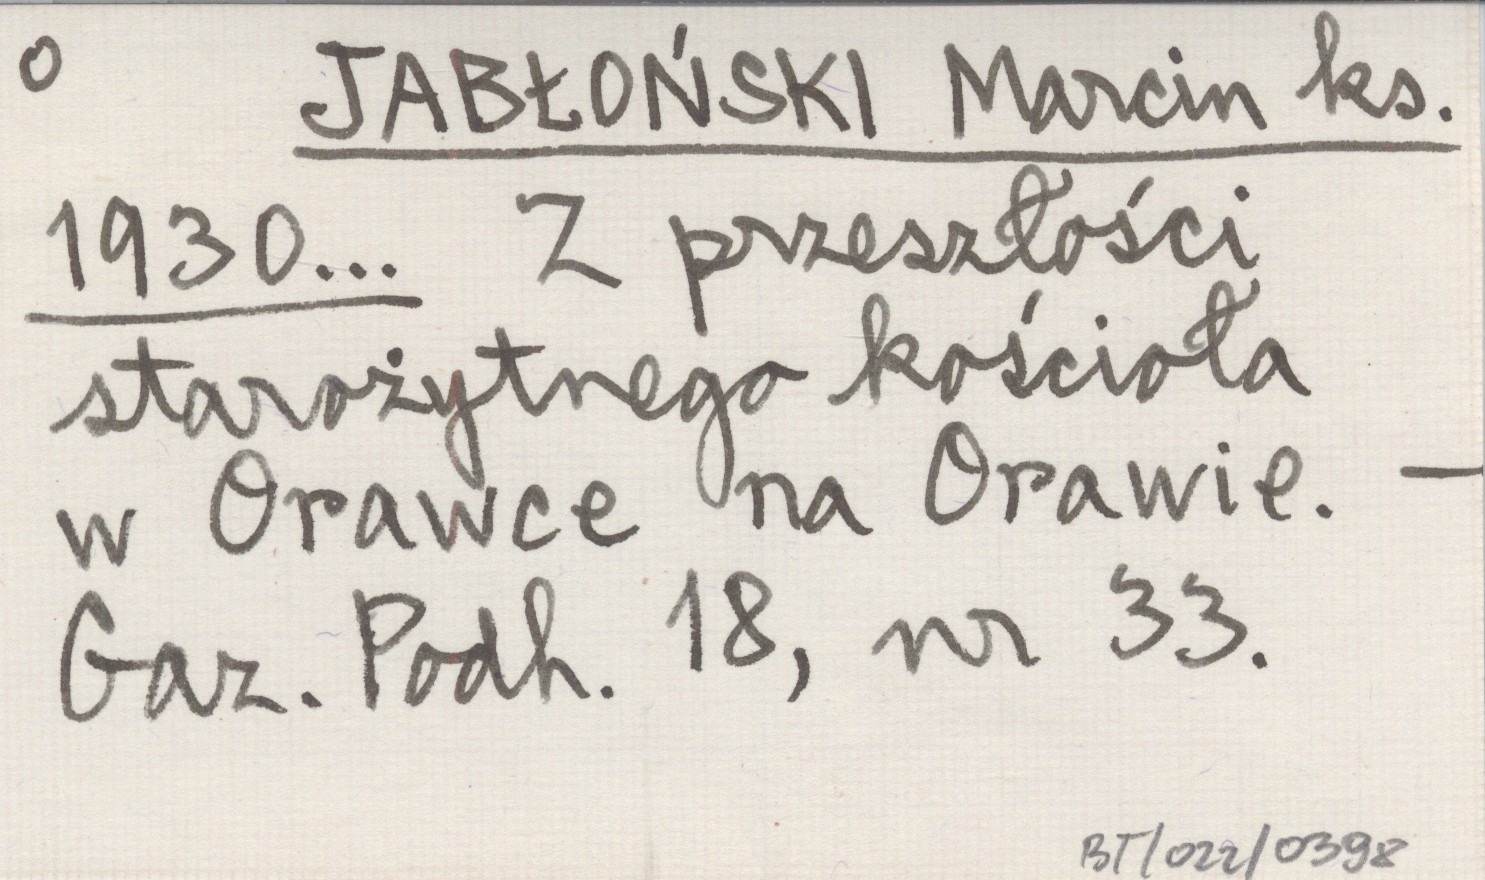 o JABŁOŃSKI Marcin ks.
1930... Z przeszłości
starożytnego kościoła
w Orawce na Orawie. —
Gaz. Podh. 18, nr 33.
BT/022/0398